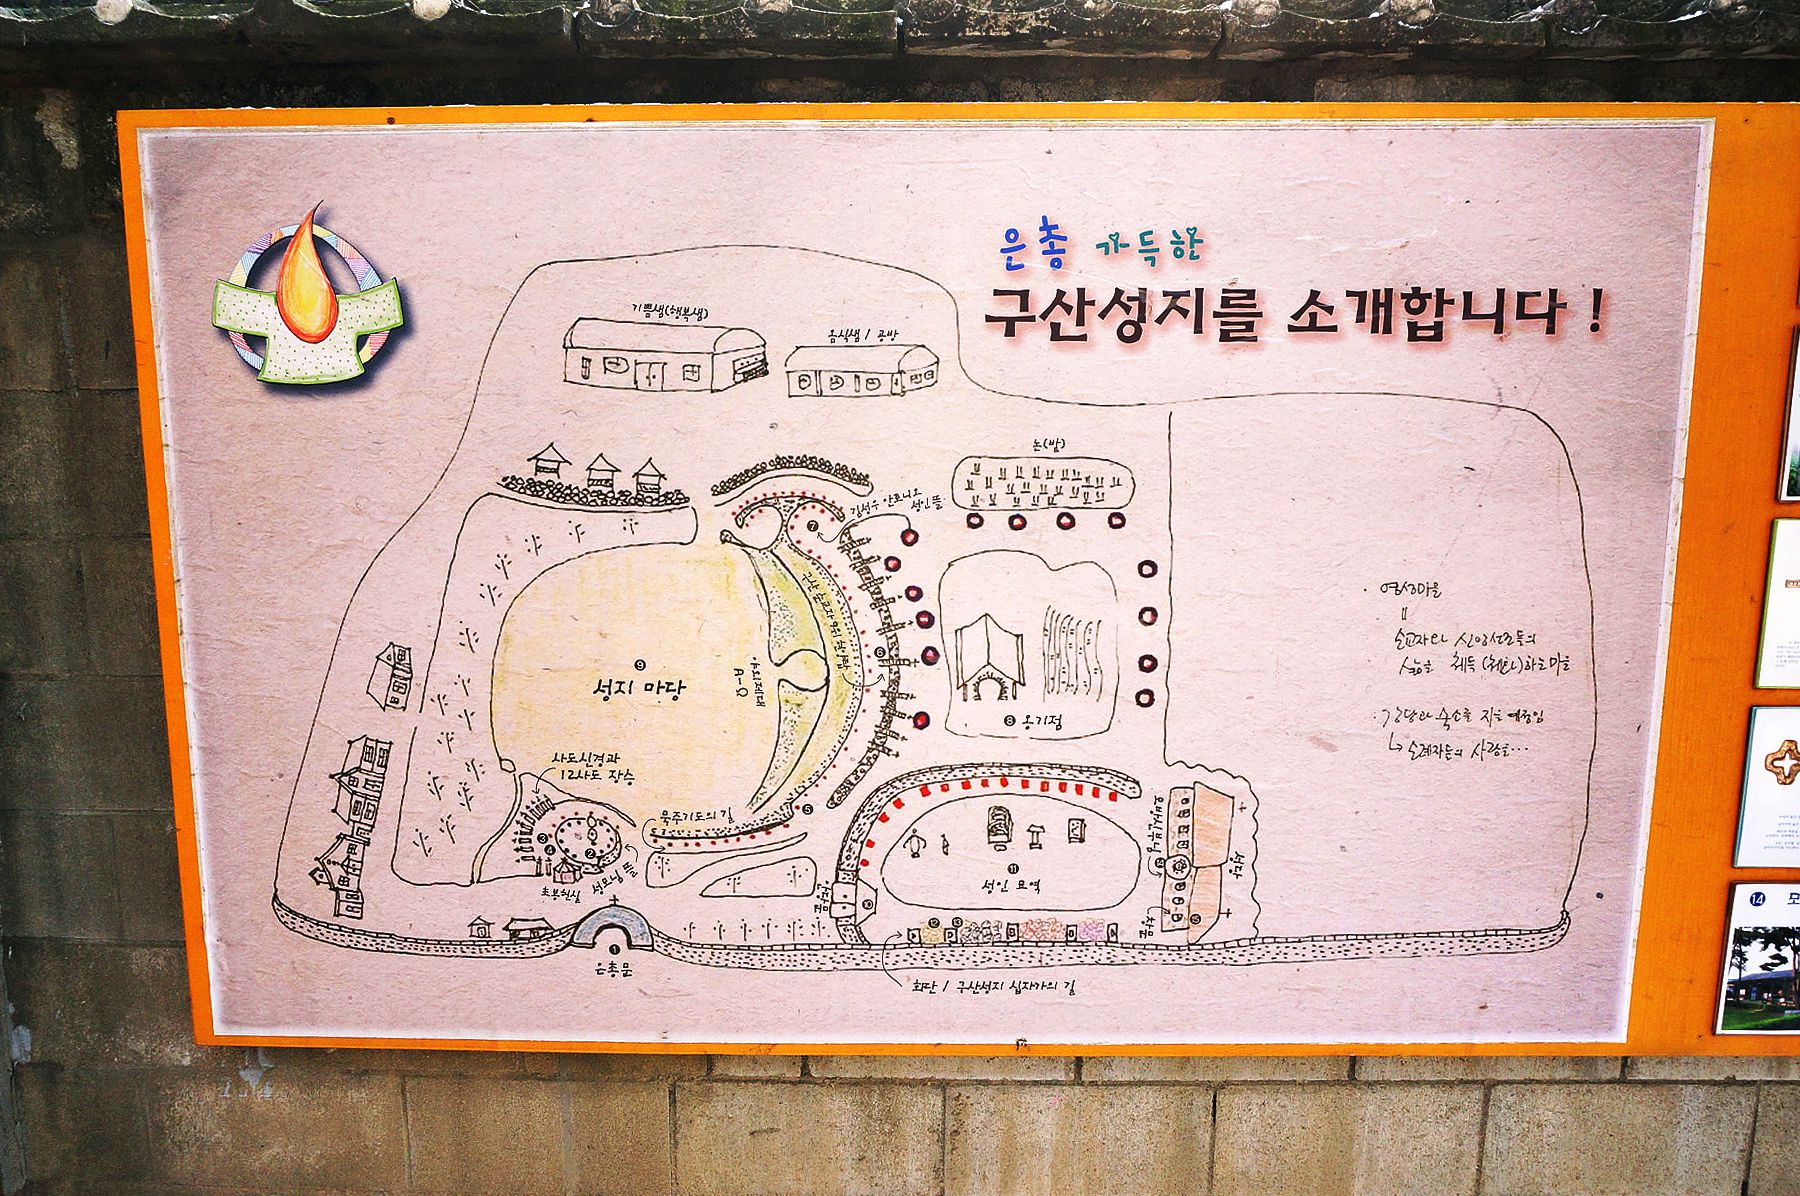 은총 가득한
구산성지를 소개합니다!
기쁨샘(행복샘)
음식샘 / 공방
논(밭)
김성우 안토니오
성인뜰
7
구산 순교자
6
9
성지 마당
야외제대
A-Q
8 옹기점
영성마을
순교자와 신앙선조들의
삶을 체득(체험)하는 마을
강당과 숙소를 지을 예정임
사도신경과
12사도 장승
묵주기도의 길
5
3
4
2
성모님
초봉헌실
안당문
11
성인 묘역
성당
12
13
10
1
은총문
화단 / 구산성지 십자가의 길
14 모